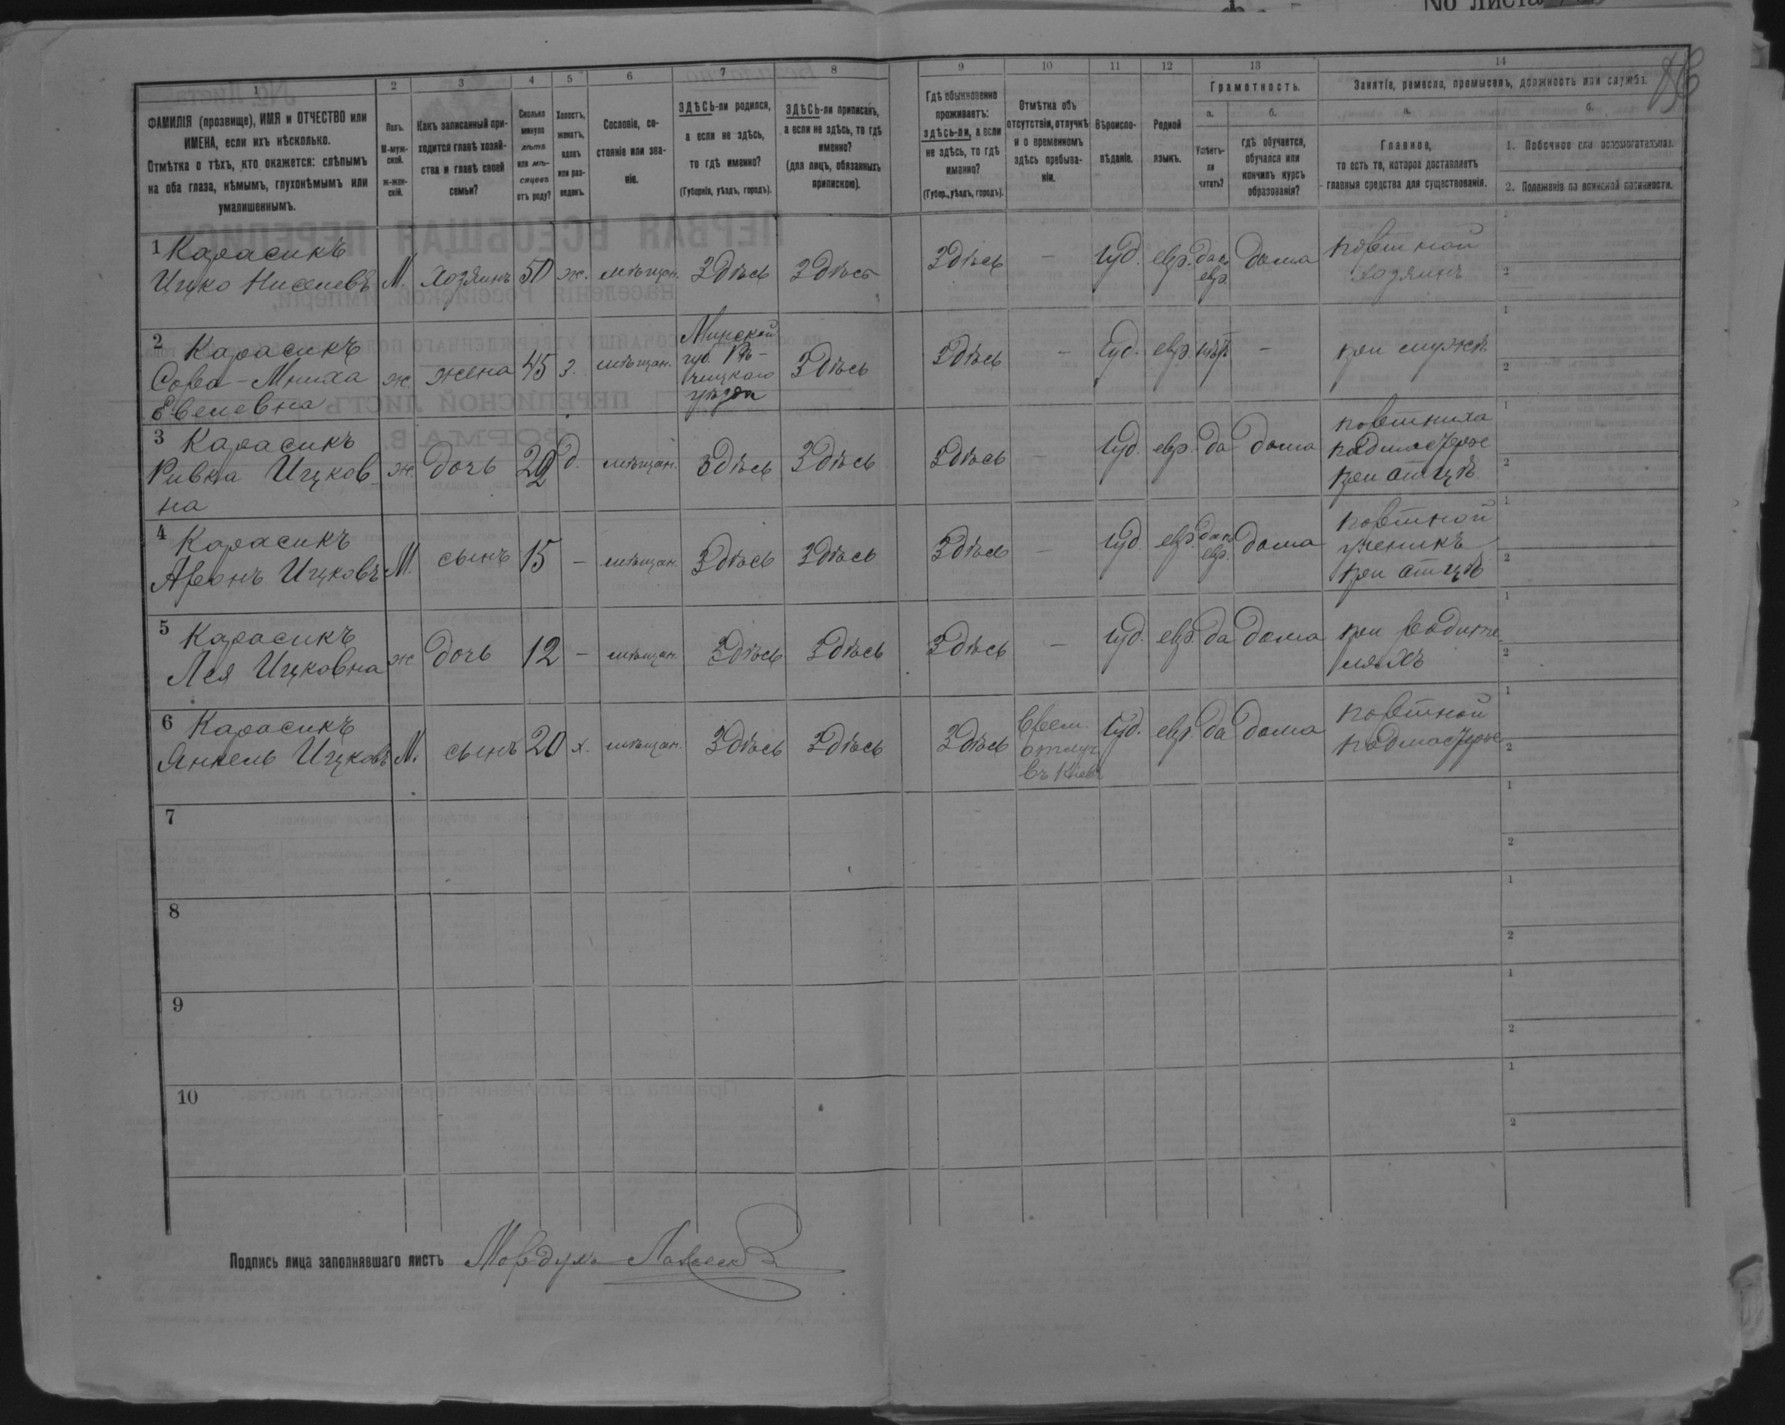 № Листа
1
2
3
4
5
6
7
8
9
10
11
12
13
14
ФАМИЛІЯ (прозвище), ИМЯ и ОТЧЕСТВО или
ИМЕНА, если ихъ нѣсколько.
Отмѣтка о тѣхъ, кто окажется: слѣпымъ
на оба глаза, нѣмымъ, глухонѣмымъ или
умалишеннымъ.
Полъ.
М-муж-
ской.
ж-жен-
скій.
Какъ записанный при-
ходится главѣ хозяй-
ства и главѣ своей
семьи?
Сколько
минуло
лѣтъ
или мѣ-
сяцевъ
отъ роду?
Холостъ,
женатъ,
вдовъ
или раз-
веденъ.
Сословіе, со-
стояніе или зва-
ніе.
ЗДѢСЬ-ли родился,
а если не здѣсь,
то гдѣ именно?
(Губернія, уѣздъ, городъ).
ЗДѢСЬ-ли приписанъ,
а если не здѣсь, то гдѣ
именно?
(для лицъ, обязанныхъ
припискою).
Гдѣ обыкновенно
проживаетъ:
здѣсь-ли, а если
не здѣсь, то гдѣ
именно?
(Губер., уѣздъ, городъ).
Отмѣтка объ
отсутствіи, отлучкѣ
и о временномъ
здѣсь пребыва-
ніи.
Вѣроиспо-
вѣданіе.
Родной
языкъ.
Грамотность.
а.
б.
Умѣетъ-
ли
читать?
гдѣ обучается,
обучался или
кончилъ курсъ
образованія?
Занятіе, ремесло, промыселъ, должность или служба.
а.
б.
Главное,
то есть то, которое доставляетъ
главныя средства для существованія.
1. Побочное или вспомогательное.
2. Положеніе по воинской повинности.
1 Карасикъ
Ицко Ниселевъ М. хозяинъ 50 ж. мѣщан. Здѣсь Здѣсь Здѣсь — Іуд. евр. да евр. дома портной
хозяинъ
1
2
2 Карасикъ
Сора-Мниха
Евелевна ж. жена 45 з. мѣщан. Минской
губ. Рѣ-
чицкаго
уѣзда Здѣсь Здѣсь — Іуд. евр. нѣтъ — при мужѣ
1
2
3 Карасикъ
Ривка Ицков-
на ж. дочь 22 д. мѣщан. Здѣсь Здѣсь Здѣсь — Іуд. евр. да дома портниха
подмастерье
при отцѣ
1
2
4 Карасикъ
Аронъ Ицковъ М. сынъ 15 — мѣщан. Здѣсь Здѣсь Здѣсь — Іуд. евр. да евр. дома портной
ученикъ
при отцѣ
1
2
5 Карасикъ
Лея Ицковна ж. дочь 12 — мѣщан. Здѣсь Здѣсь Здѣсь — Іуд. евр. да дома при родите-
ляхъ
1
2
6 Карасикъ
Янкель Ицковъ М. сынъ 20 х. мѣщан. Здѣсь Здѣсь Здѣсь Врем.
отлуч.
въ Кіевѣ Іуд. евр. да дома портной
подмастерье
1
2
7
1
2
8
1
2
9
1
2
10
1
2
Подпись лица заполнявшаго листъ Мордухъ